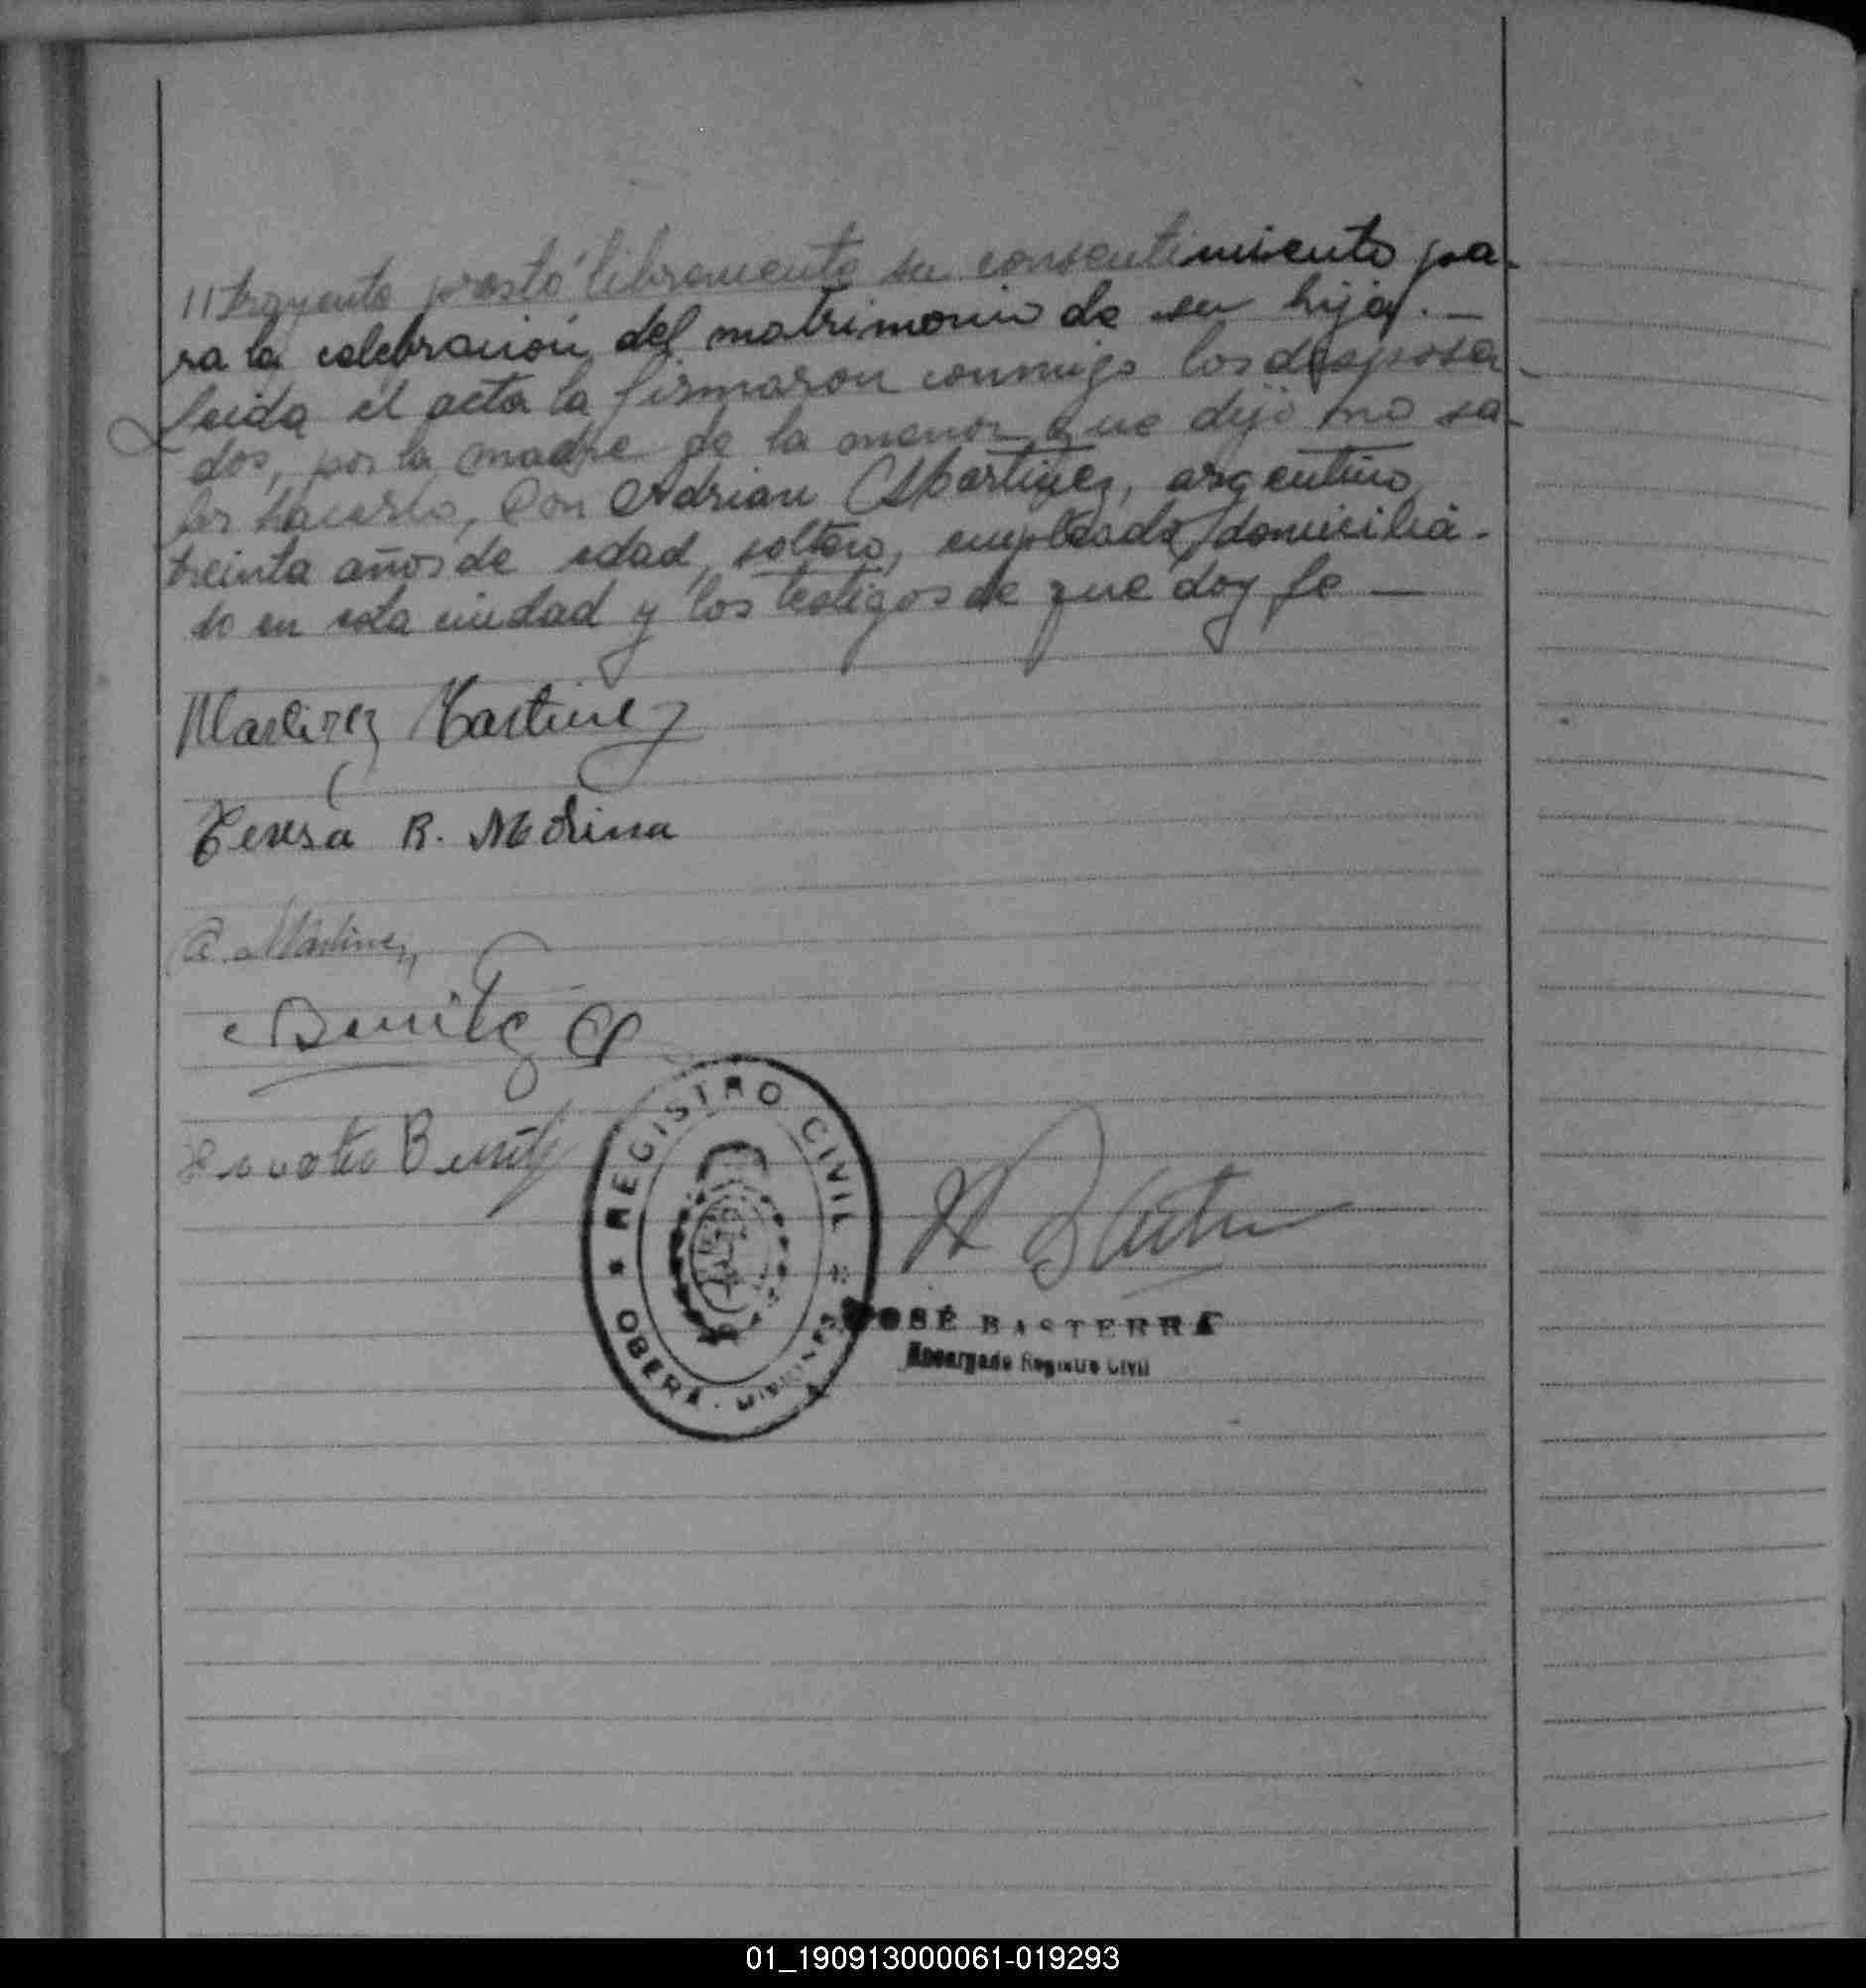 // trayente prestó libremente su consentimiento pa-
ra la celebración del matrimonio de su hija. —
Leida el acta la firmaron conmigo los desposa-
dos, por la madre de la menor que dijo no sa-
ber hacerlo, Don Adrian Martinez, argentino,
treinta años de edad, soltero, empleado, domicilia-
do en esta ciudad y los testigos de que doy fe —
Martinez
Teresa R. Medina
A. Martinez
Benitez
Benitez
REGISTRO CIVIL
OBERÁ - MISIONES
JOSÉ BASTERRA
Encargado Registro Civil
01_190913000061-019293